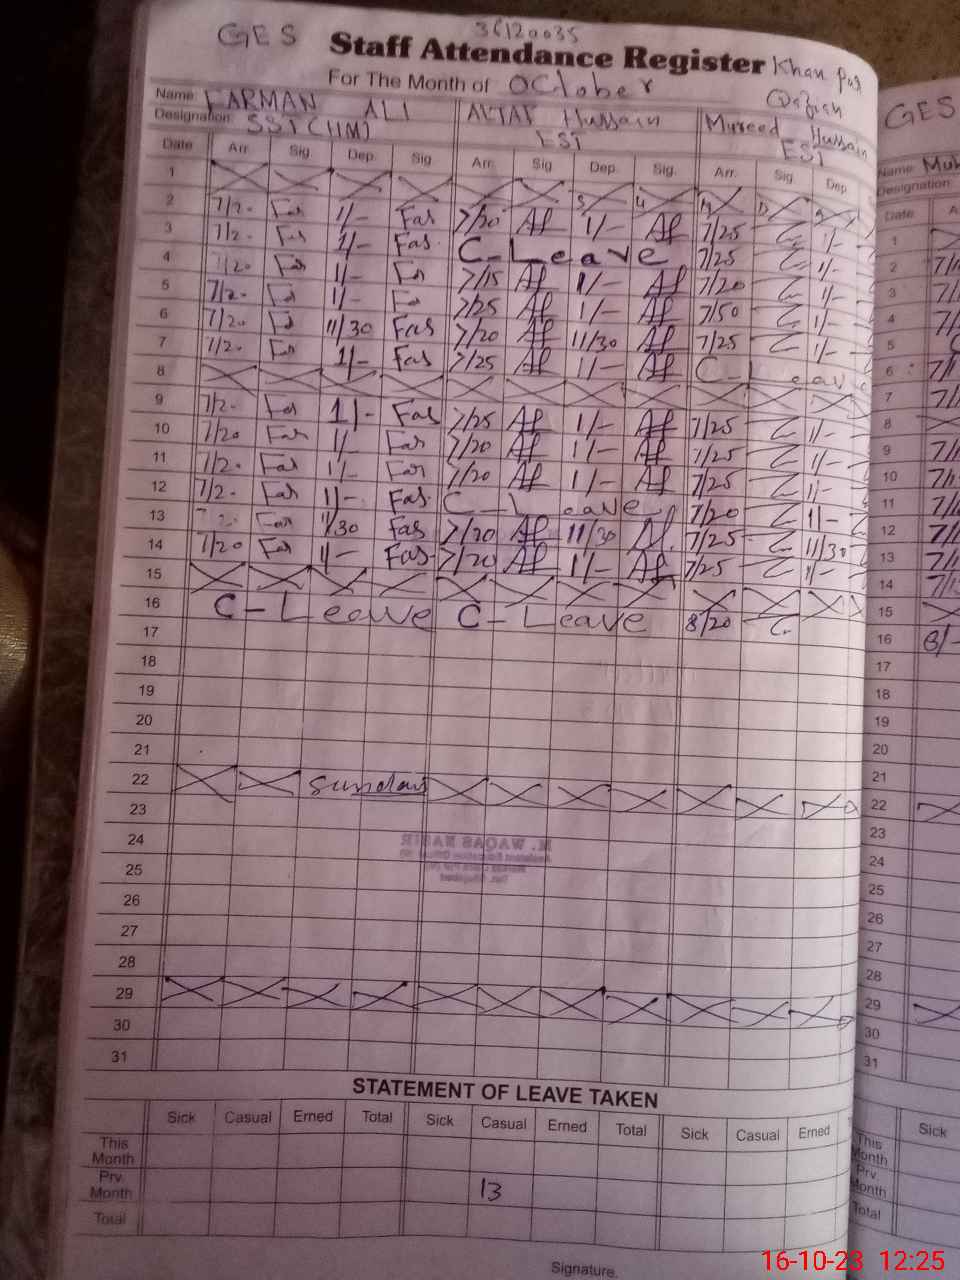 GES 36120035
Staff Attendance Register Khan Pur
For The Month of October Qazian
Name: FARMAN ALI ALTAF Hussain Mureed Hussain
Designation: SST(HM) EST EST
Date Arr. Sig. Dep. Sig. Arr. Sig. Dep. Sig. Arr. Sig. Dep.
1
2 7/20 Far 1/- Far 7/20 Af 1/- Af 7/25 1/-
3 7/20 Far 1/- Far C-Leave 7/25 1/-
4 7/20 Far 1/- Far 7/15 Af 1/- Af 7/20 1/-
5 7/20 Far 1/- Far 7/25 Af 1/- Af 7/50 1/-
6 7/20 Far 11/30 Far 7/20 Af 11/30 Af 7/25 1/-
7 7/20 Far 1/- Far 7/25 Af 1/- Af C-Leave
8
9 7/20 Far 1/- Far 7/25 Af 1/- Af 7/25 1/-
10 7/20 Far 1/- Far 7/20 Af 1/- Af 7/25 1/-
11 7/20 Far 1/- Far 7/20 Af 1/- Af 7/25 1/-
12 7/20 Far 1/- Far C-Leave 7/20 1/-
13 Far 11/30 Far 7/20 Af 11/30 Af 7/25 11/30
14 7/20 Far 1/- Far 7/20 Af 1/- Af 7/25 1/-
15
16 C-Leave C-Leave 8/20
17
18
19
20
21
22 Sunday
23
24
25
26
27
28
29
30
31
STATEMENT OF LEAVE TAKEN
Sick Casual Erned Total Sick Casual Erned Total Sick Casual Erned
This Month
Prv. Month 13
Total
Signature.
GES
Name:
Designation:
Date
1
2
3
4
5
6
7
8
9
10
11
12
13
14
15
16 8/-
17
18
19
20
21
22
23
24
25
26
27
28
29
30
31
Sick
This Month
Prv. Month
Total
16-10-23 12:25